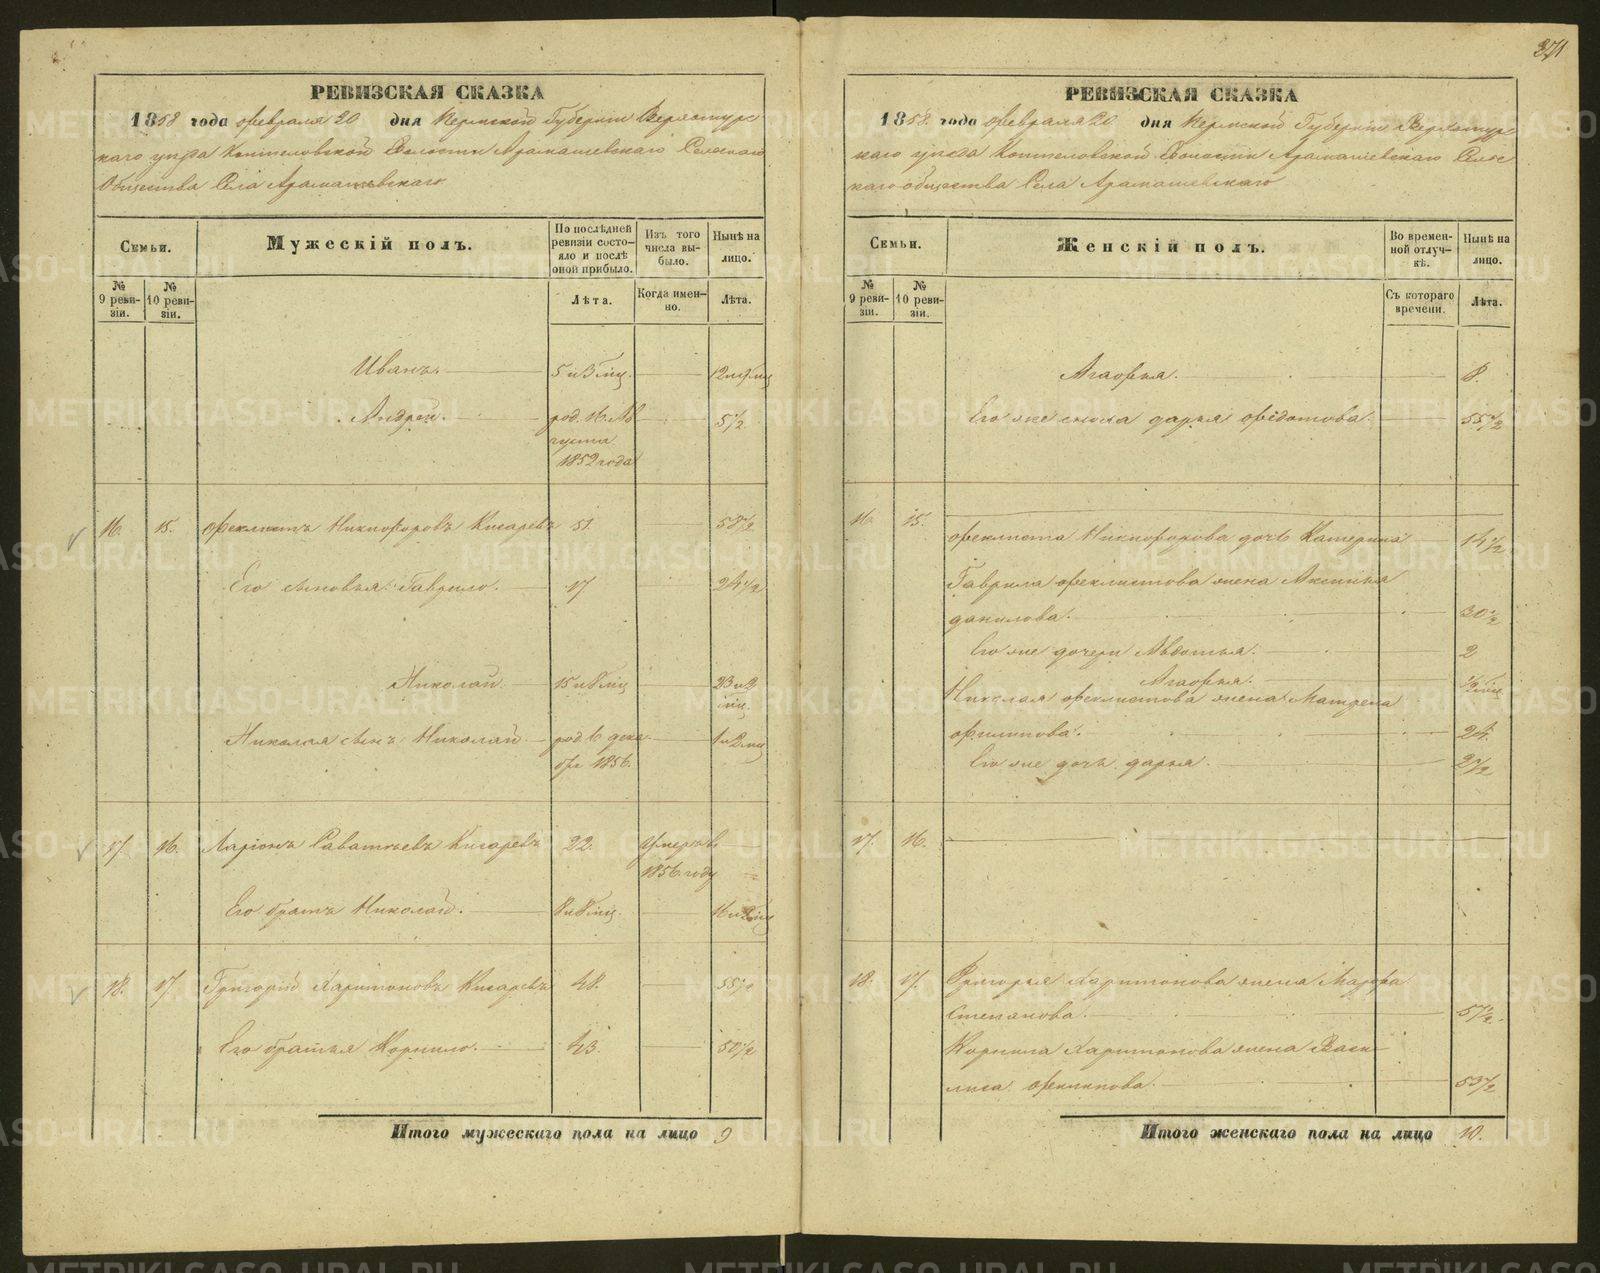 371
РЕВИЗСКАЯ СКАЗКА
1858 года февраля 20 дня Пермской Губернии Верхотурс
каго уезда Коптеловской Волости Арамашевскаго Сельскаго
Общества Села Арамашевскаго
Семьи.
Мужескій полъ.
По послѣдней ревизіи состояло и послѣ оной прибыло.
Изъ того числа выбыло.
Нынѣ на лицо.
№ 9 ревизіи.
№ 10 ревизіи.
Лѣта.
Когда именно.
Лѣта.
Иванъ. 5 и 3 мц.
Андрей. род. 16 Ав 5½
густа
1852 года
16. 15. Феклистъ Никифоровъ Кисаревъ 51. 58½
Его сыновья: Гаврило. 17 24½
Николай 15 и 8 мц 23 и 2
мц.
Николая сынъ Николай род. 6 дека 1 и 2 мц
бря 1856.
17. 16. Ларіонъ Саватьевъ Кисаревъ 22. Умеръ въ
1856 году
Его братъ Николай. 8 и 8 мц.
18. 17. Григорій Харитоновъ Кисаревъ 48. 55½
Его братья Корнило. 43. 50½
Итого мужескаго пола на лицо 9
РЕВИЗСКАЯ СКАЗКА
1858 года февраля 20 дня Пермской Губерніи Верхотурс
каго уезда Коптеловской Волости Арамашевскаго Сельс
каго общества Села Арамашевскаго
Семьи.
Женскій полъ.
Во временной отлучкѣ.
Нынѣ на лицо.
№ 9 ревизіи.
№ 10 ревизіи.
Съ котораго времени.
Лѣта.
Агафья. 8.
Его же сноха Дарья Федотова. 55½
16. 15.
Феклиста Никифорова дочь Катерина 14½
Гаврила Феклистова жена Аксинья
Данилова. 30½
Его же дочери Авдотья. 2
Агафья.
Николая Феклистова жена Матрена
Филипова. 24.
Его же дочь Дарья. 2½
17. 16.
18. 17. Григорья Харитонова жена Марфа
Степанова. 57½
Корнила Харитонова жена Васи
лиса Филипова. 53½
Итого женскаго пола на лицо 10.
METRIKI.GASO-URAL.RU